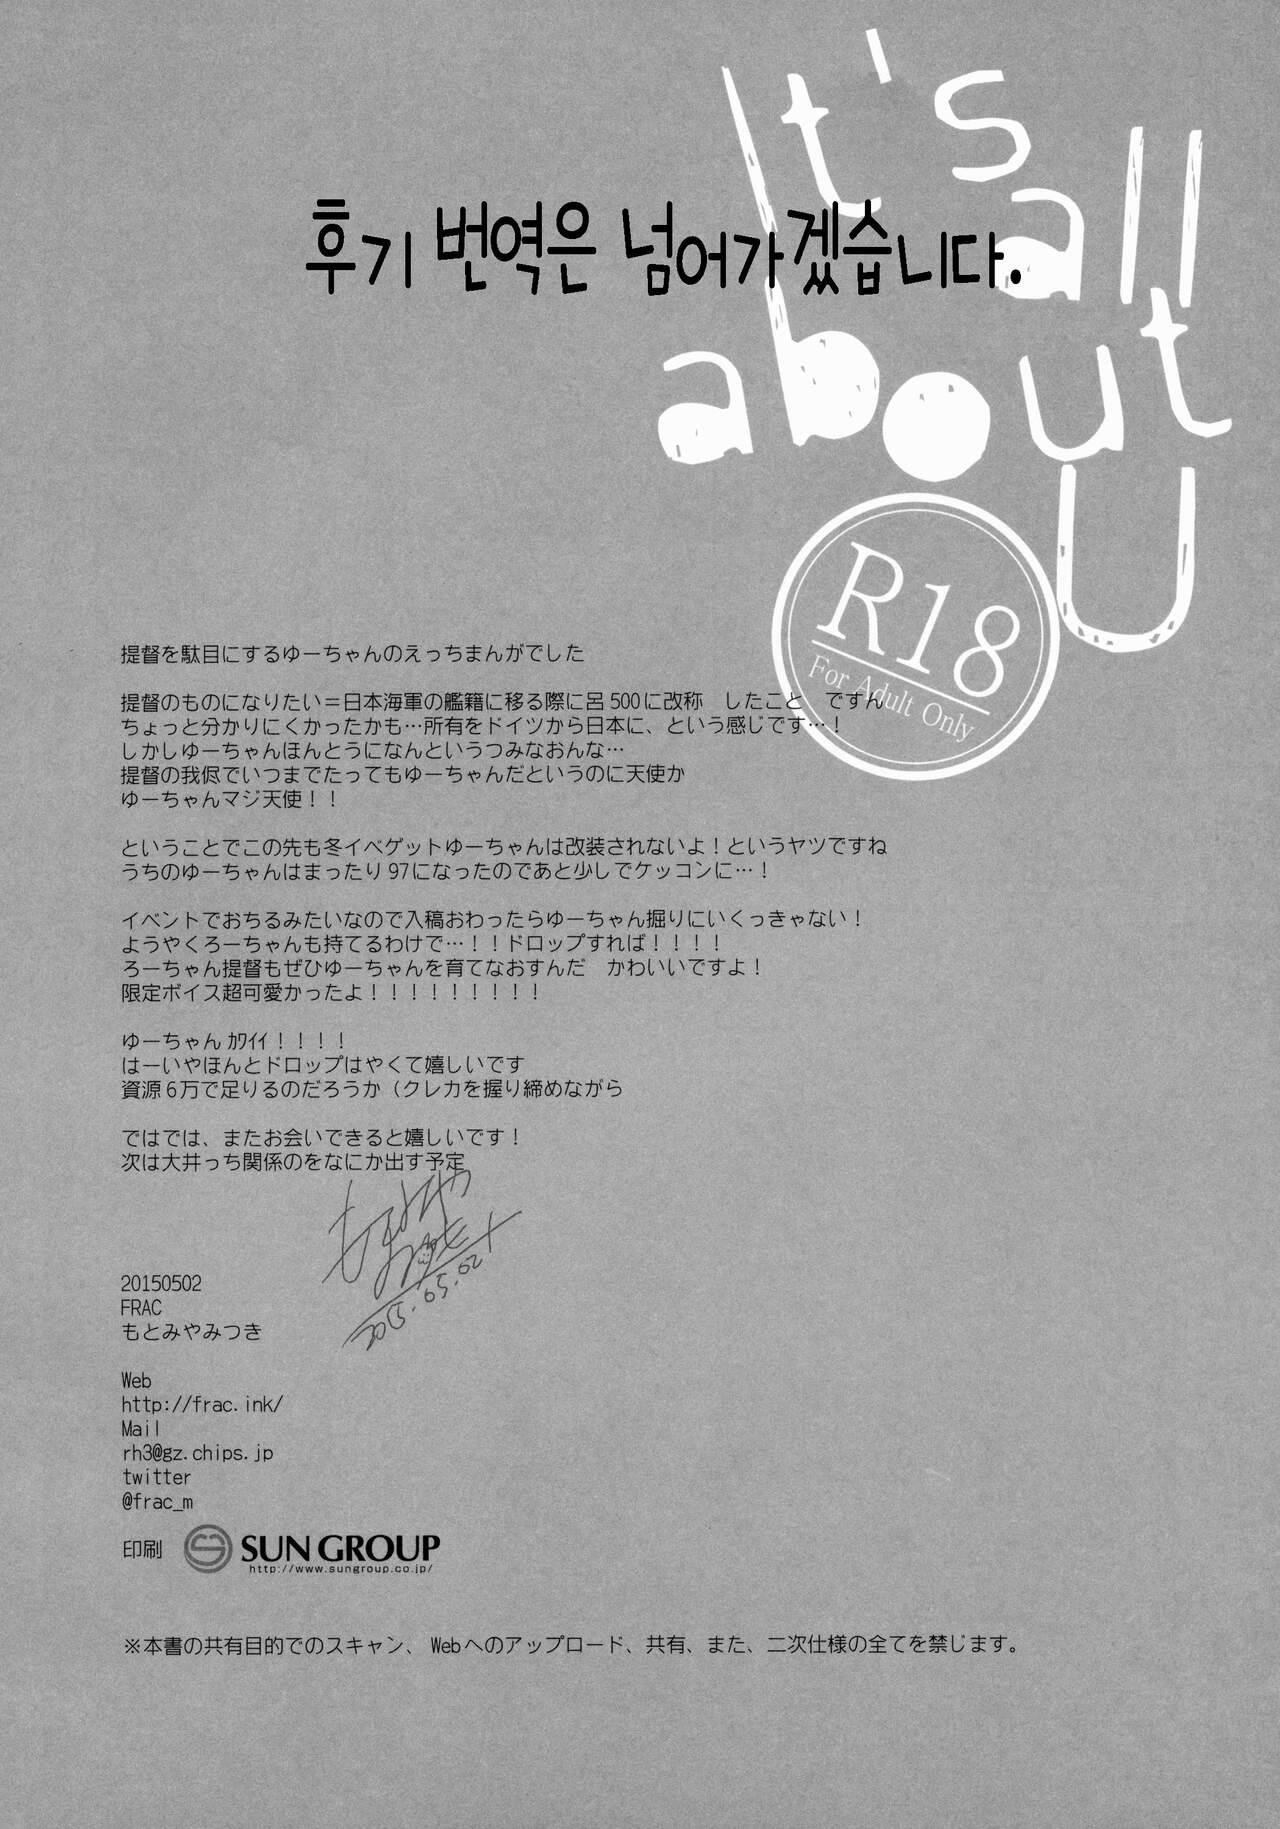 It's
all
about
U
후기 번역은 넘어가겠습니다.
R18
For Adult Only
提督を駄目にするゆーちゃんのえっちまんがでした
提督のものになりたい＝日本海軍の艦籍に移る際に呂500に改称　したこと　ですん
ちょっと分かりにくかったかも…所有をドイツから日本に、という感じです…！
しかしゆーちゃんほんとうになんというつみなおんな…
提督の我侭でいつまでたってもゆーちゃんだというのに天使か
ゆーちゃんマジ天使！！
ということでこの先も冬イベゲットゆーちゃんは改装されないよ！というヤツですね
うちのゆーちゃんはまったり97になったのであと少しでケッコンに…！
イベントでおちるみたいなので入稿おわったらゆーちゃん掘りにいくっきゃない！
ようやくろーちゃんも持てるわけで…！！ドロップすれば！！！！
ろーちゃん提督もぜひゆーちゃんを育てなおすんだ　かわいいですよ！
限定ボイス超可愛かったよ！！！！！！！！！
ゆーちゃん ｶﾜｲｲ！！！！
はーいやほんとドロップはやくて嬉しいです
資源6万で足りるのだろうか（クレカを握り締めながら
ではでは、またお会いできると嬉しいです！
次は大井っち関係のをなにか出す予定
もとみや
2015.05.02
20150502
FRAC
もとみやみつき
Web
http://frac.ink/
Mail
rh3@gz.chips.jp
twitter
@frac_m
印刷 SUN GROUP
http://www.sungroup.co.jp/
※本書の共有目的でのスキャン、Webへのアップロード、共有、また、二次仕様の全てを禁じます。